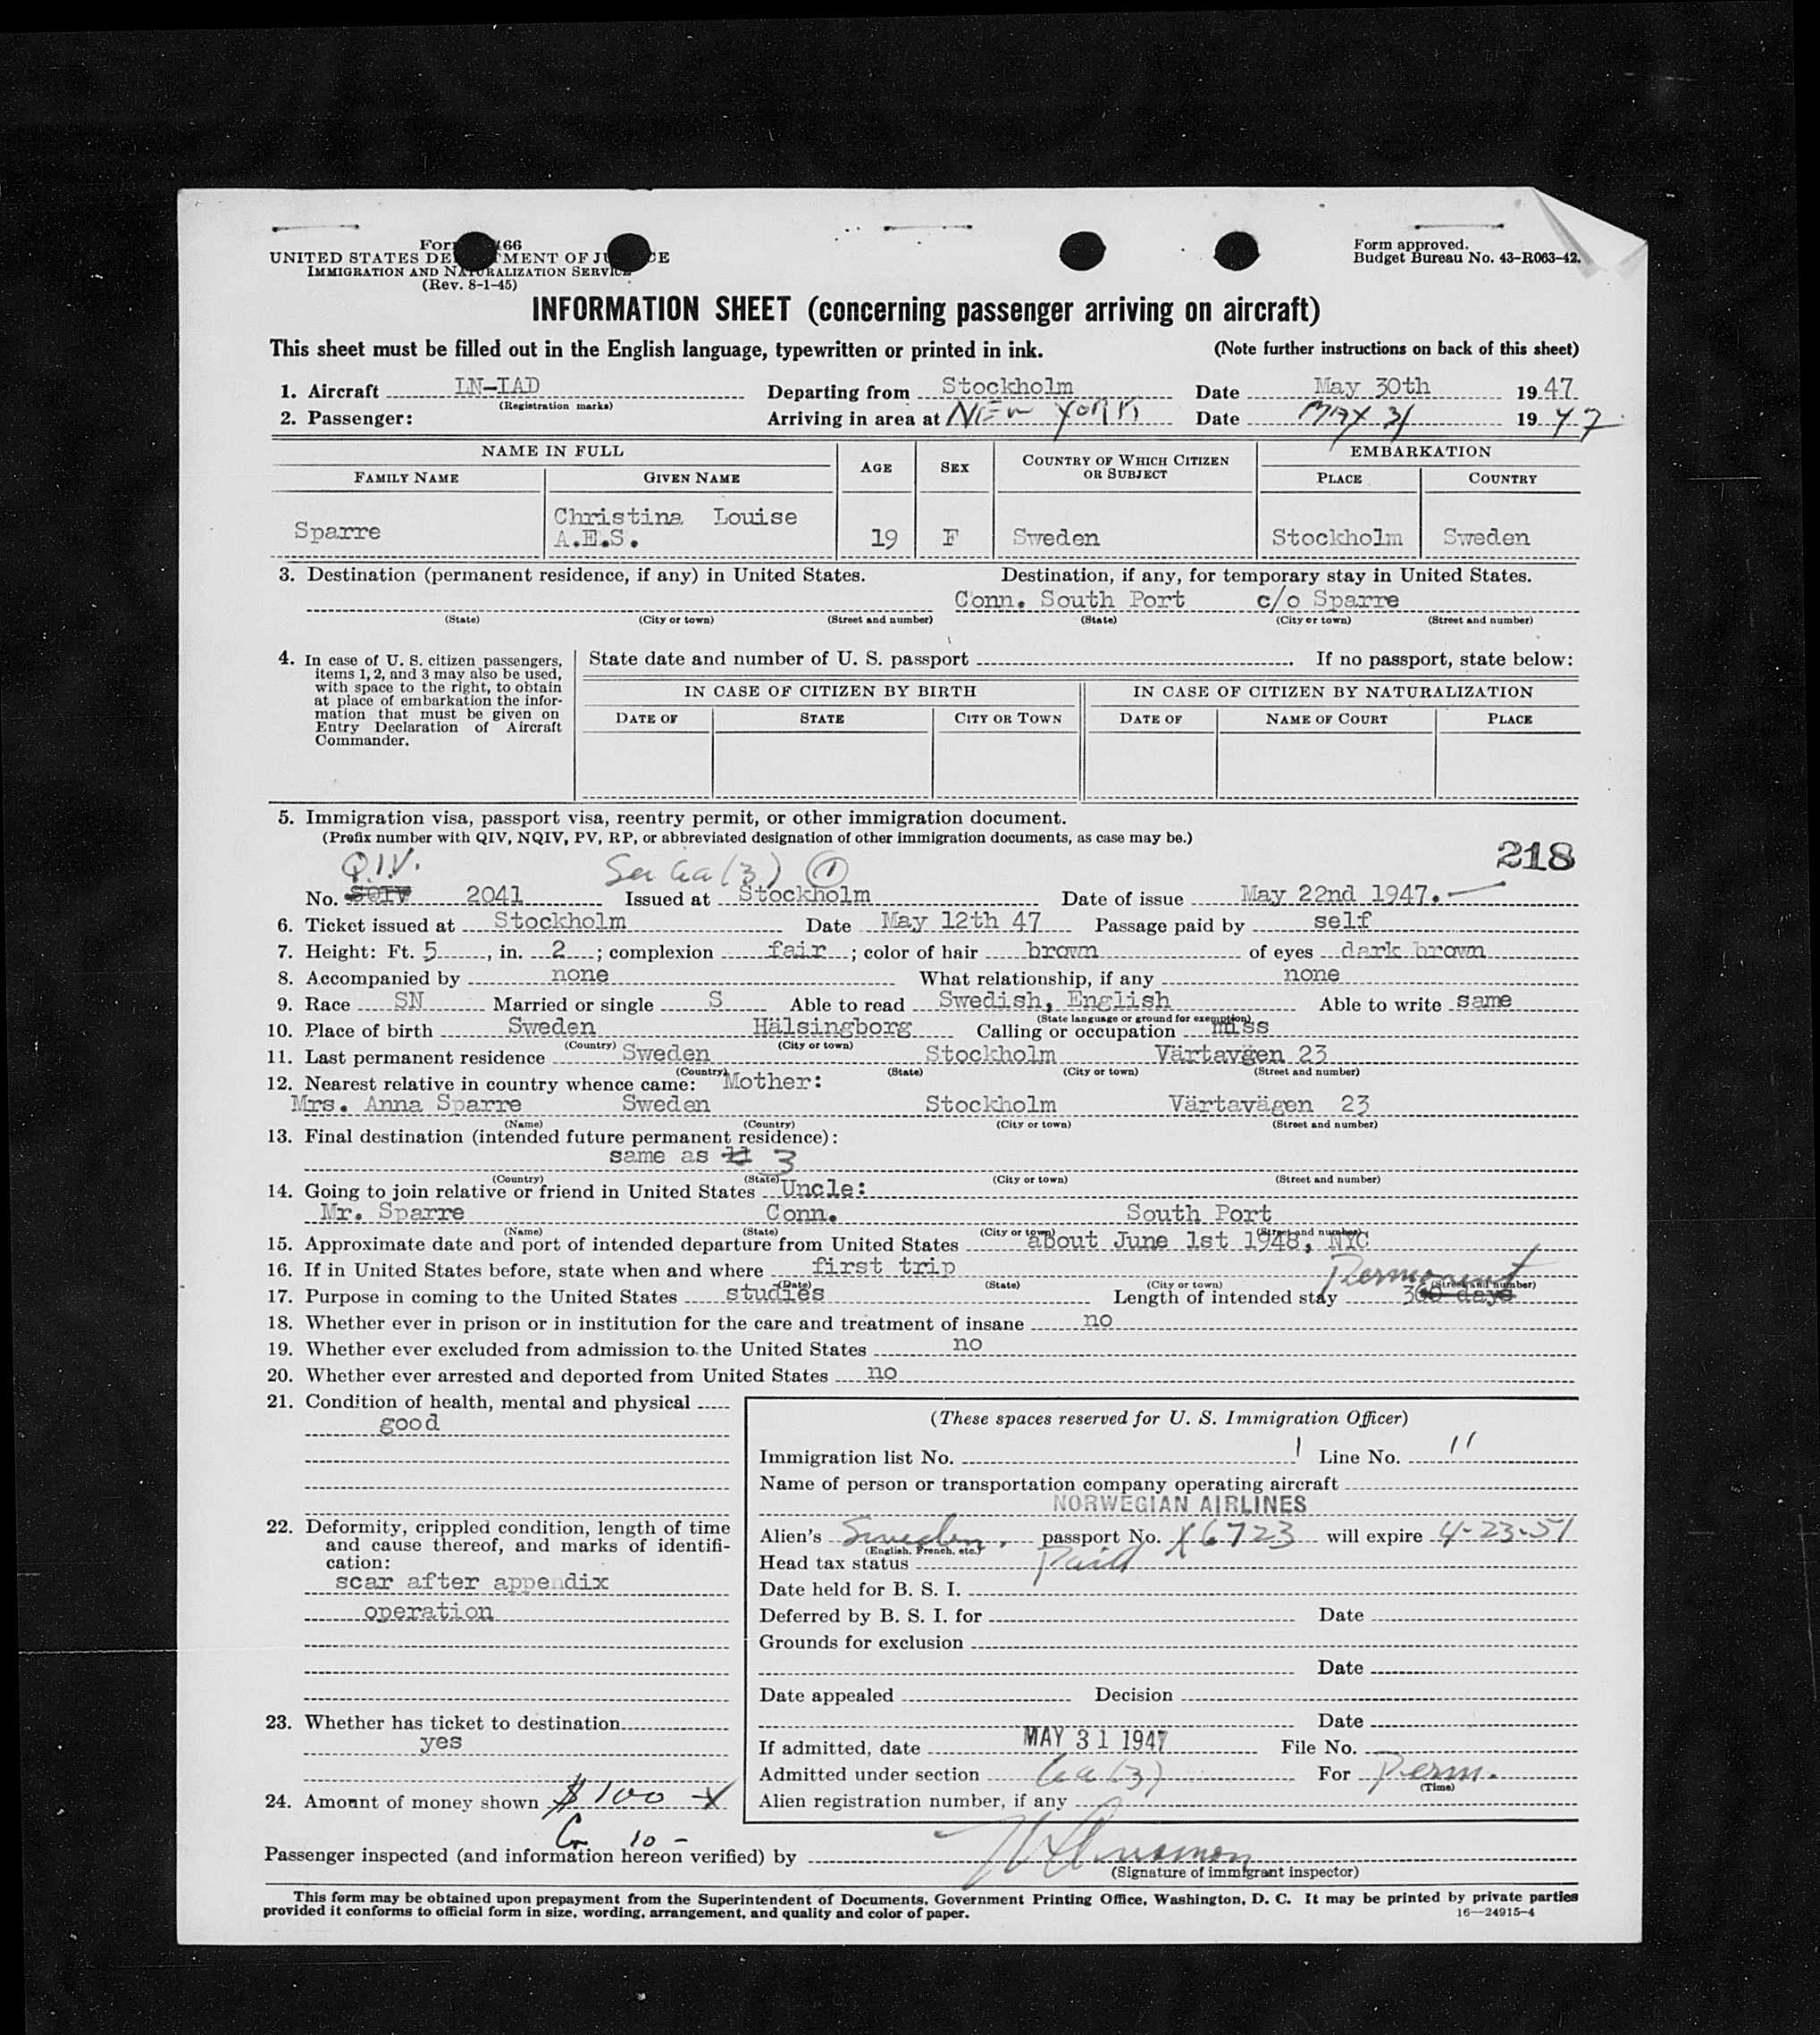 Form 466
UNITED STATES DEPARTMENT OF JUSTICE
IMMIGRATION AND NATURALIZATION SERVICE
(Rev. 8-1-45)
Form approved.
Budget Bureau No. 43-R063-42.
INFORMATION SHEET (concerning passenger arriving on aircraft)
This sheet must be filled out in the English language, typewritten or printed in ink. (Note further instructions on back of this sheet)
1. Aircraft LN-IAD Departing from Stockholm Date May 30th 1947
(Registration marks)
2. Passenger: Arriving in area at NEW YORK Date MAY 31 1947
NAME IN FULL AGE SEX COUNTRY OF WHICH CITIZEN OR SUBJECT EMBARKATION
FAMILY NAME GIVEN NAME PLACE COUNTRY
Sparre Christina Louise A.E.S. 19 F Sweden Stockholm Sweden
3. Destination (permanent residence, if any) in United States. Destination, if any, for temporary stay in United States.
Conn. South Port c/o Sparre
(State) (City or town) (Street and number) (State) (City or town) (Street and number)
4. In case of U. S. citizen passengers,
items 1, 2, and 3 may also be used,
with space to the right, to obtain
at place of embarkation the infor-
mation that must be given on
Entry Declaration of Aircraft
Commander.
State date and number of U. S. passport If no passport, state below:
IN CASE OF CITIZEN BY BIRTH IN CASE OF CITIZEN BY NATURALIZATION
DATE OF STATE CITY OR TOWN DATE OF NAME OF COURT PLACE
5. Immigration visa, passport visa, reentry permit, or other immigration document.
(Prefix number with QIV, NQIV, PV, RP, or abbreviated designation of other immigration documents, as case may be.)
218
Q.I.V. Sec 6a(3) 1
No. 2041 Issued at Stockholm Date of issue May 22nd 1947.
6. Ticket issued at Stockholm Date May 12th 47 Passage paid by self
7. Height: Ft. 5, in. 2; complexion fair; color of hair brown of eyes dark brown
8. Accompanied by none What relationship, if any none
9. Race SN Married or single S Able to read Swedish, English Able to write same
(State language or ground for exemption)
10. Place of birth Sweden Hälsingborg Calling or occupation miss
(Country) (City or town)
11. Last permanent residence Sweden Stockholm Värtavgën 23
(Country) (State) (City or town) (Street and number)
12. Nearest relative in country whence came: Mother:
Mrs. Anna Sparre Sweden Stockholm Värtavägen 23
(Name) (Country) (City or town) (Street and number)
13. Final destination (intended future permanent residence):
same as 11 3
(Country) (State) (City or town) (Street and number)
14. Going to join relative or friend in United States Uncle:
Mr. Sparre Conn. South Port
(Name) (State) (City or town) (Street and number)
15. Approximate date and port of intended departure from United States about June 1st 1948, NYC
16. If in United States before, state when and where first trip
(Date) (State) (City or town) (Street and number)
Permanent
17. Purpose in coming to the United States studies Length of intended stay 360 days
18. Whether ever in prison or in institution for the care and treatment of insane no
19. Whether ever excluded from admission to the United States no
20. Whether ever arrested and deported from United States no
21. Condition of health, mental and physical
good
22. Deformity, crippled condition, length of time
and cause thereof, and marks of identifi-
cation:
scar after appendix
operation
23. Whether has ticket to destination
yes
24. Amount of money shown $100
10 -
(These spaces reserved for U. S. Immigration Officer)
Immigration list No. 1 Line No. 11
Name of person or transportation company operating aircraft
NORWEGIAN AIRLINES
Alien's Sweden. passport No. X6723 will expire 4-23-51
(English, French, etc.)
Head tax status Paid
Date held for B. S. I.
Deferred by B. S. I. for Date
Grounds for exclusion
Date
Date appealed Decision
Date
If admitted, date MAY 31 1947 File No.
Admitted under section 6a(3) For Perm.
(Time)
Alien registration number, if any
Passenger inspected (and information hereon verified) by
(Signature of immigrant inspector)
This form may be obtained upon prepayment from the Superintendent of Documents, Government Printing Office, Washington, D. C. It may be printed by private parties
provided it conforms to official form in size, wording, arrangement, and quality and color of paper. 16—24915-4